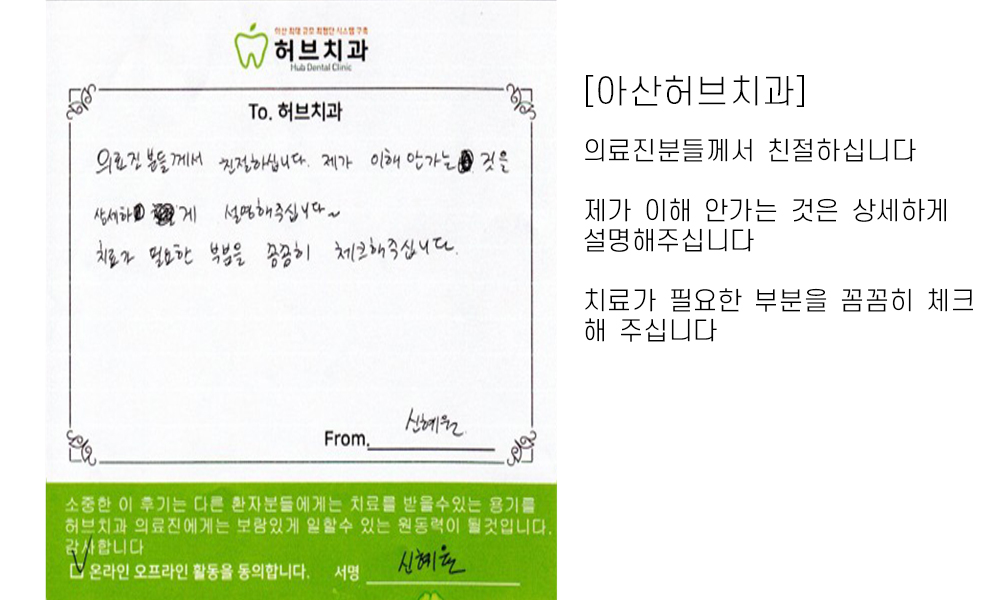 아산 최대 규모 최첨단 시스템 구축
허브치과
Hub Dental Clinic
To. 허브치과
의료진분들께서 친절하십니다. 제가 이해 안가는 것을
상세하게 설명해주십니다~
치료가 필요한 부분을 꼼꼼히 체크해주십니다.
From. 신혜원
소중한 이 후기는 다른 환자분들에게는 치료를 받을수있는 용기를
허브치과 의료진에게는 보람있게 일할수 있는 원동력이 될것입니다.
감사합니다
온라인 오프라인 활동을 동의합니다. 서명 신혜원
[아산허브치과]
의료진분들께서 친절하십니다
제가 이해 안가는 것은 상세하게
설명해주십니다
치료가 필요한 부분을 꼼꼼히 체크
해 주십니다